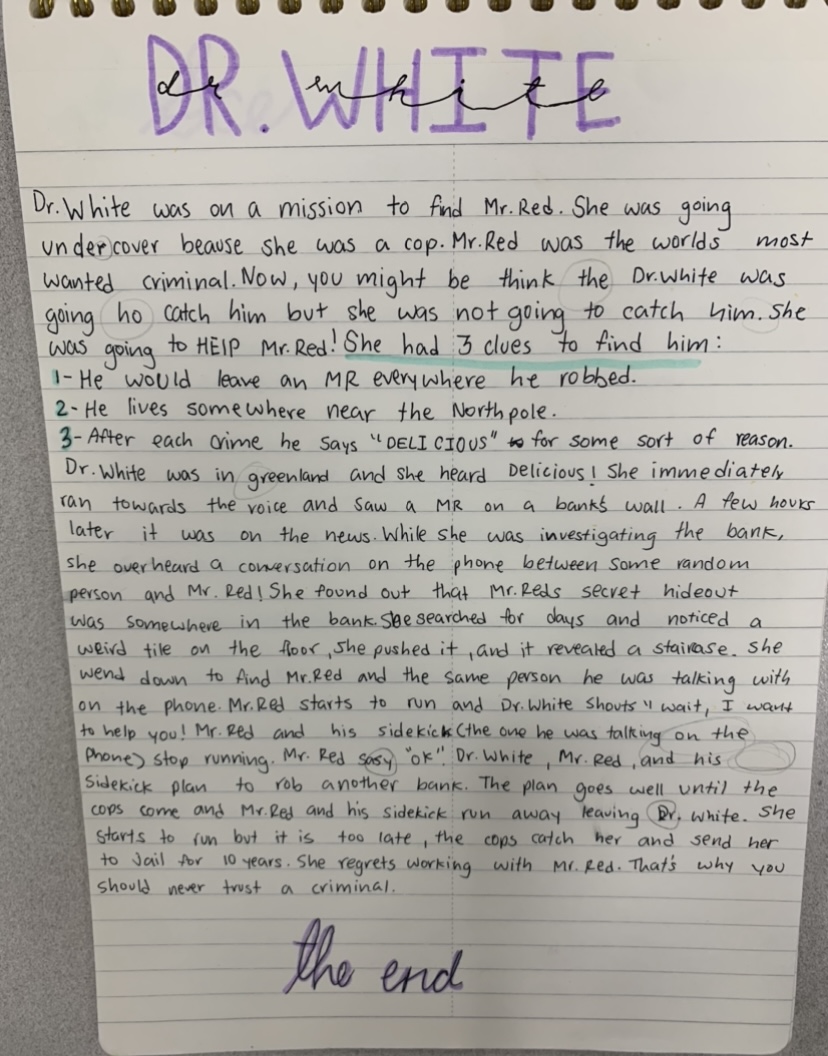 DR. WHITE
dr white
Dr. White was on a mission to find Mr. Red. She was going
undercover beause she was a cop. Mr. Red was the worlds most
wanted criminal. Now, you might be think the Dr. White was
going ho catch him but she was not going to catch him. She
was going to HElP Mr. Red! She had 3 clues to find him:
1- He would leave an MR everywhere he robbed.
2- He lives somewhere near the North pole.
3- After each crime he says "DELICIOUS" for some sort of reason.
Dr. White was in greenland and she heard Delicious! She immediately
ran towards the voice and saw a MR on a bank's wall. A few hours
later it was on the news. While she was investigating the bank,
she overheard a conversation on the phone between some random
person and Mr. Red! She found out that Mr. Reds secret hideout
was somewhere in the bank. She searched for days and noticed a
weird tile on the floor, she pushed it, and it revealed a stairase. She
wend down to find Mr. Red and the same person he was talking with
on the phone. Mr. Red starts to run and Dr. White shouts "wait, I want
to help you! Mr. Red and his sidekick (the one he was talking on the
Phone) stop running. Mr. Red sasy "ok". Dr. White, Mr. Red, and his
Sidekick plan to rob another bank. The plan goes well until the
cops come and Mr. Red and his sidekick run away leaving Dr. White. She
starts to run but it is too late, the cops catch her and send her
to Jail for 10 years. She regrets working with Mr. Red. That's why you
should never trust a criminal.
the end